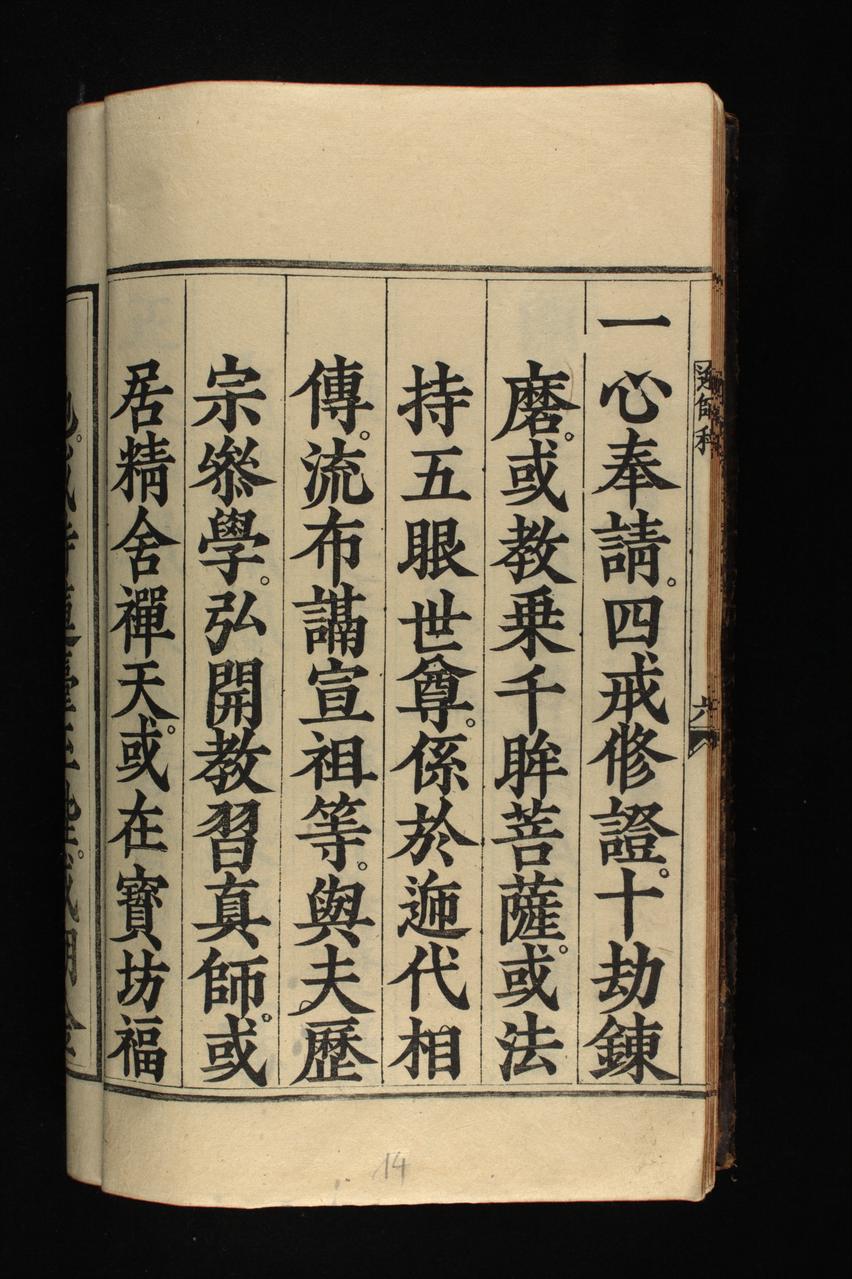 一心奉請。四戒修證。十劫鍊
磨。或教乗千眸菩薩。或法
持五眼世尊。係於迊代相
傳。流布講宣祖等。與夫歷
宗叅學。弘開教習真師。或
居精舍禪天。或在寳坊福
六
14